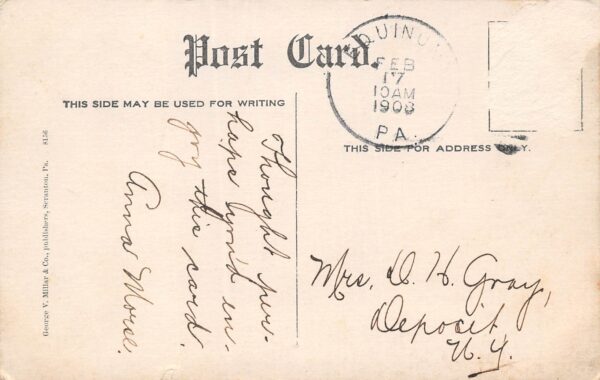 Post Card.
THIS SIDE MAY BE USED FOR WRITING
THIS SIDE FOR ADDRESS ONLY.
EQUINUNK
FEB
17
10AM
1908
PA.
Thought per-
haps you'd en-
joy this card.
Anna Morse.
Mrs. D. H. Gray,
Deposit,
N.Y.
George V. Millar & Co., publishers, Scranton, Pa. 8156